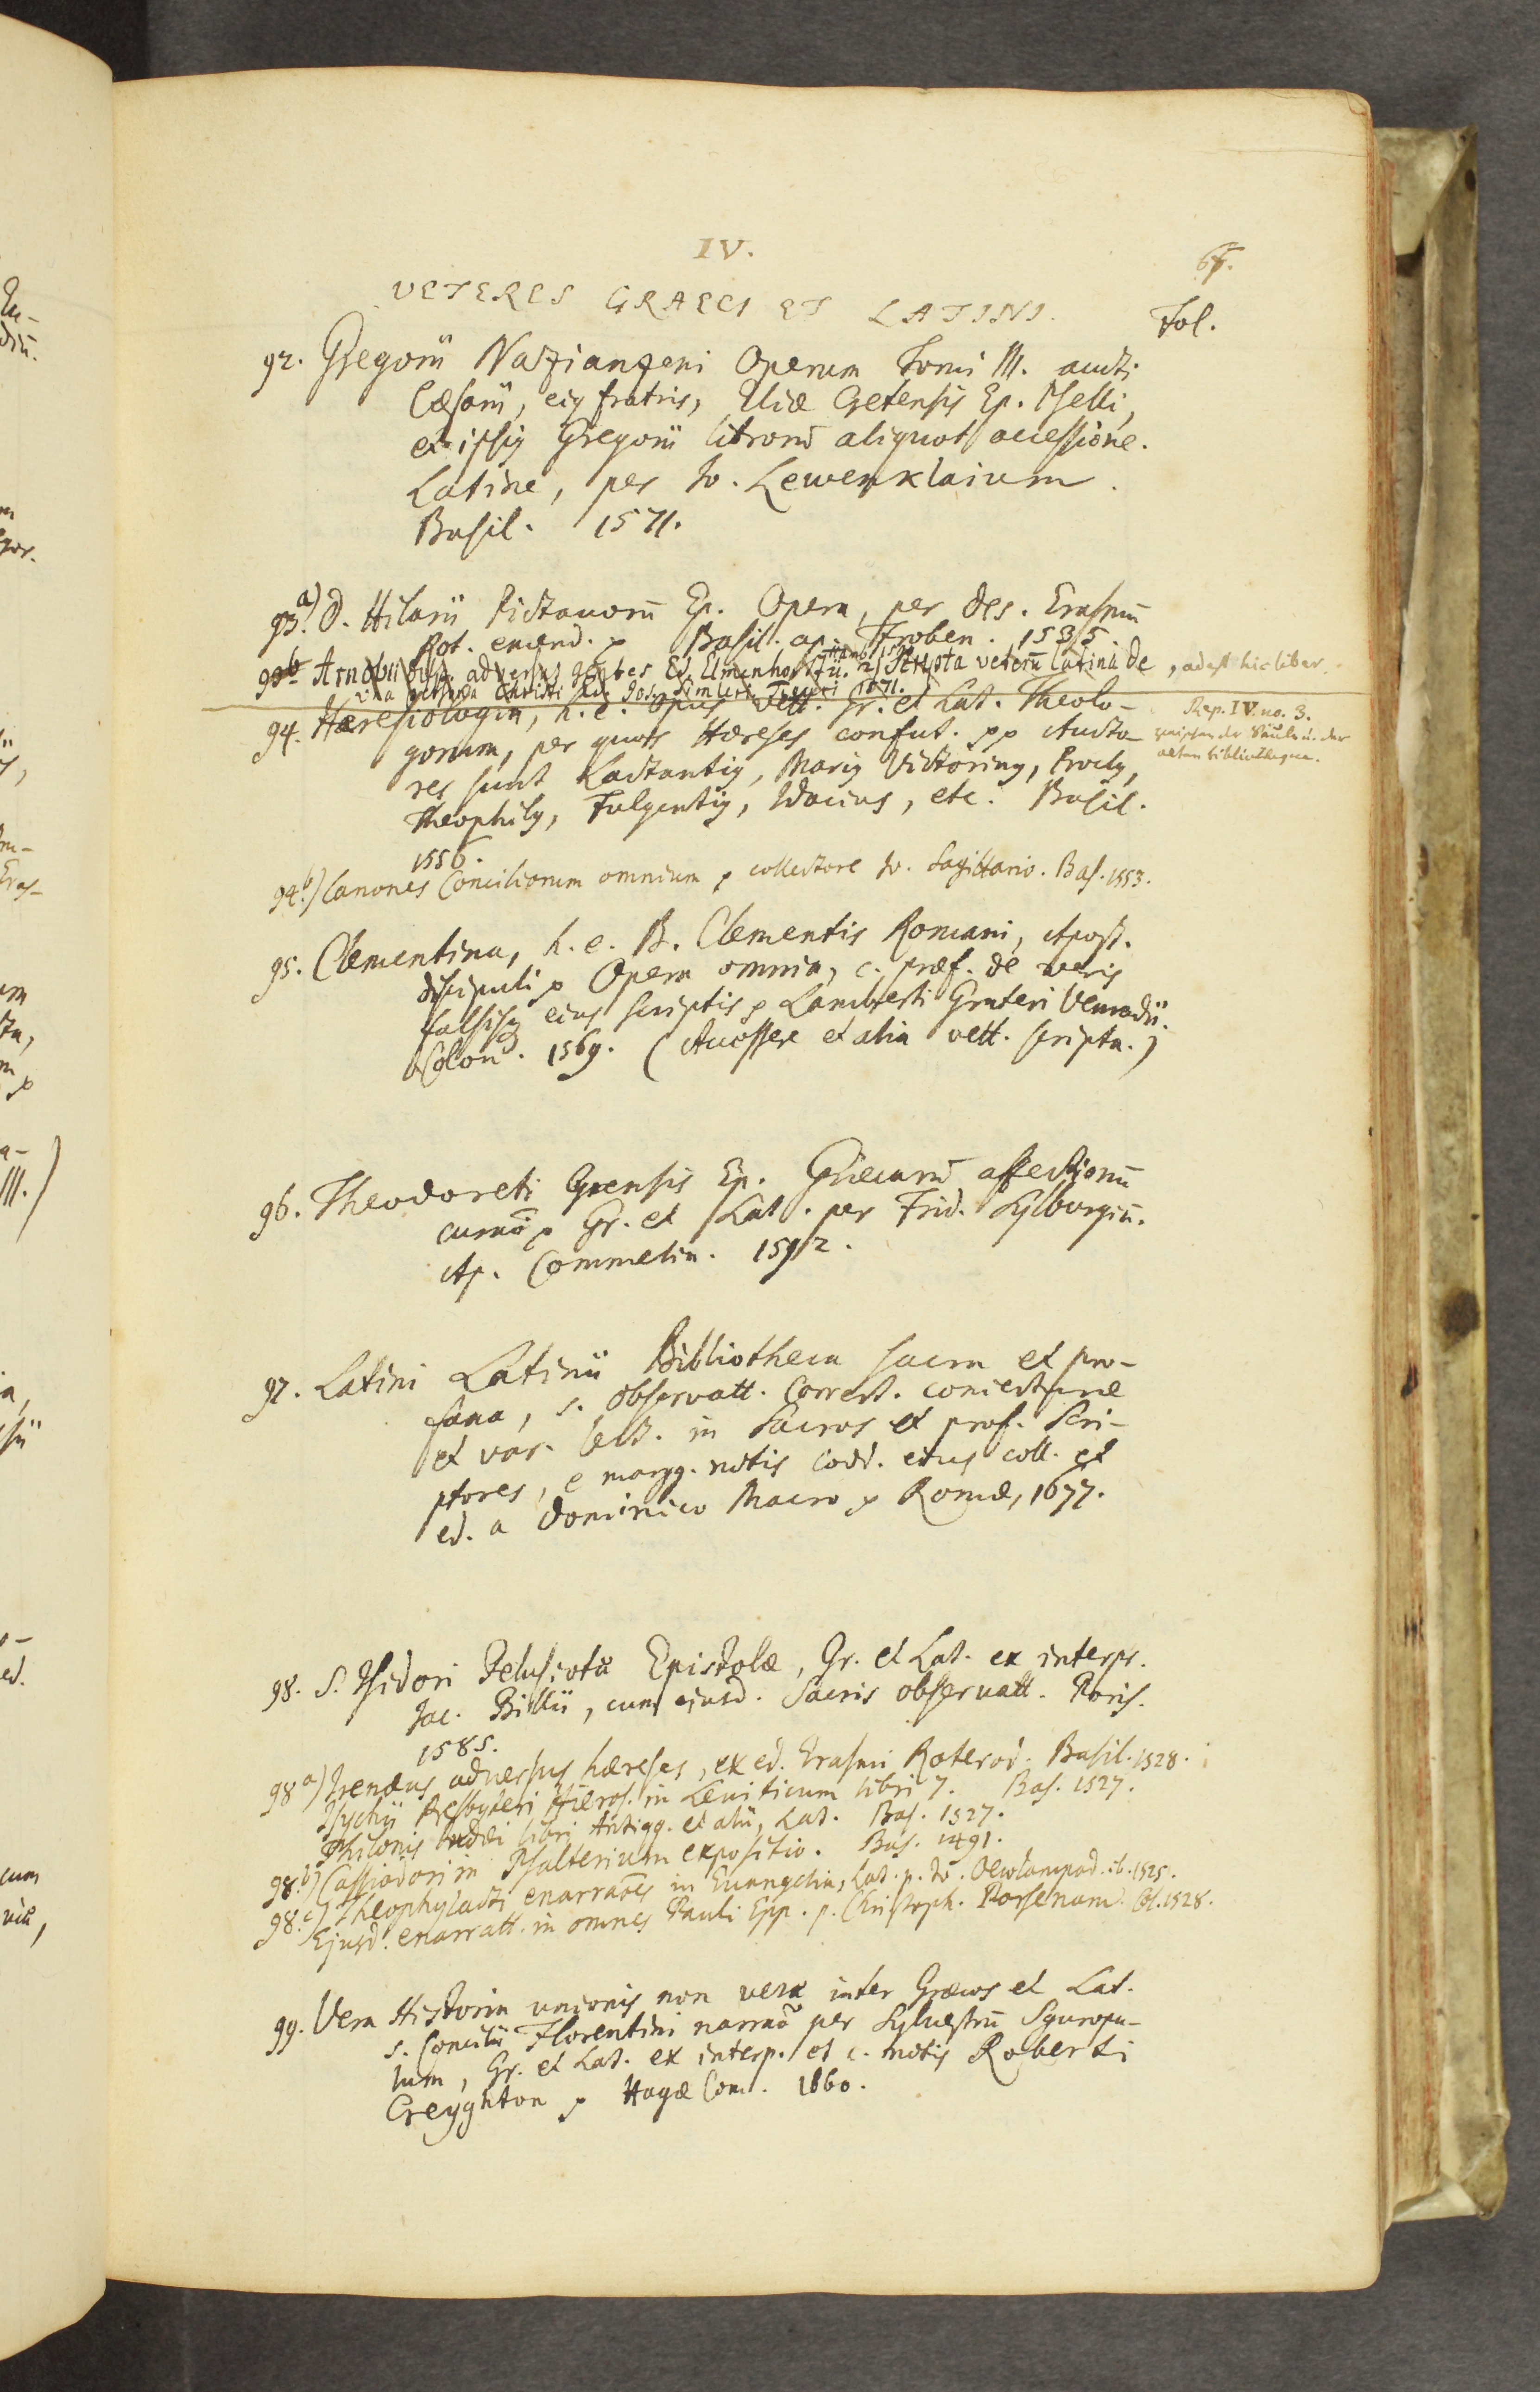 IV.
VETERES GRAECI ET LATINI.
Fol.
92. Gregorii Nazianzeni Operum Tomi III. aucti
Cæsarii, eiꝰ fratris, Eliæ Cretensis Ep. Pselli,
et ipsiꝰ Gregorii librorū aliquot accessione.
Latine, per Jo. Lewenklaium.
Basil. 1571.
93. a) D. Hilarii Pictavorū Ep. Opera, per Des. Erasmū
Rot. emend. p Basil. ap. Froben. 1535.
93b Arnobii disp. adversus gentes Ed. Elmenhorstii. Hamb. 2) Scripta veterū latina de , adest hic liber.
una persona Christi Ed. Jos. Simleri Tiguri 1571.
94. Hæresiologia, h. e. opus vett. Gr. et Lat. Theolo-
gorum, per quos Hæreses confut. pp Aucto-
res sunt Lactantiꝰ, Mariꝰ Victorinꝰ, Proclꝰ,
Theophilꝰ, Fulgentiꝰ, Idacius, etc. Basil.
1556.
Rep. IV. no. 3.
zwischen der Säule u. der
alten bibliotheque.
94. b) Canones Conciliorum omnium p collectore Jo. Sagittario. Bas. 1553.
95. Clementina, h. e. B. Clementis Romani, Apost.
discipuli p Opera omnia, c. præf. de veris
falsisq eius scriptis p Lamberti Gruteri Venradii.
Colon. 1569. (Accessere et alia vett. scripta.)
96. Theodoreti Cyrensis Ep. Græcarū affectionū
curatō p Gr. et Lat. per Frid. Sylburgiū.
Ap. Commelin. 1592.
97. Latini Latinii Bibliotheca sacra et pro-
fana, s. Observatt. Correct. coniecturæ
et var. lect. in Sacros et prof. Scri-
ptores, e margg. notis Codd. eius coll. et
ed. a Dominico Macro p Romæ, 1677.
98. S. Isidori Pelusiotæ Epistolæ, Gr. et Lat. ex interpr.
Jac. Billii, cum ejusd. Sacris observatt. Paris.
1585.
98 a) Irenæus adversus hæreses, ex ed. Erasmi Roterod. Basil. 1528.
Isychii Presbyteri Hieros. in Leuiticum libri 7. Bas. 1527.
Philonis Iudæi libri Antiqq. et alii, Lat. Bas. 1527.
98. b) Cassiodori in Psalterium expositio. Bas. 1491.
98. c) Theophylacti enarratōes in Euangelia, Lat. p. Jo. Oecolampad. ib. 1525.
Ejusd. enarratt. in omnes Pauli Epp. p. Christoph. Porsenam. Col. 1528.
99. Vera Historia unionis non veræ inter Græcos et Lat.
s. Concilii Florentini narratō per Sylvestrū Sguropu-
lum, Gr. et Lat. ex interp. et c. notis Roberti
Creyghton p Hagæ Com. 1660.